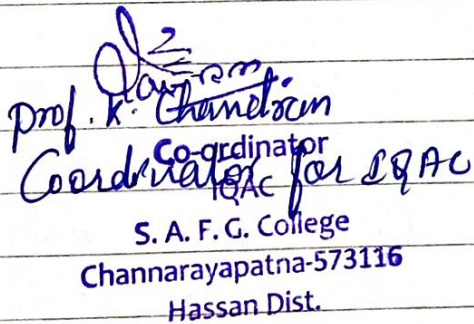 Prof. K. Chandran
Co-ordinator
Coordinator for IQAC
IQAC
S. A. F. G. College
Channarayapatna-573116
Hassan Dist.